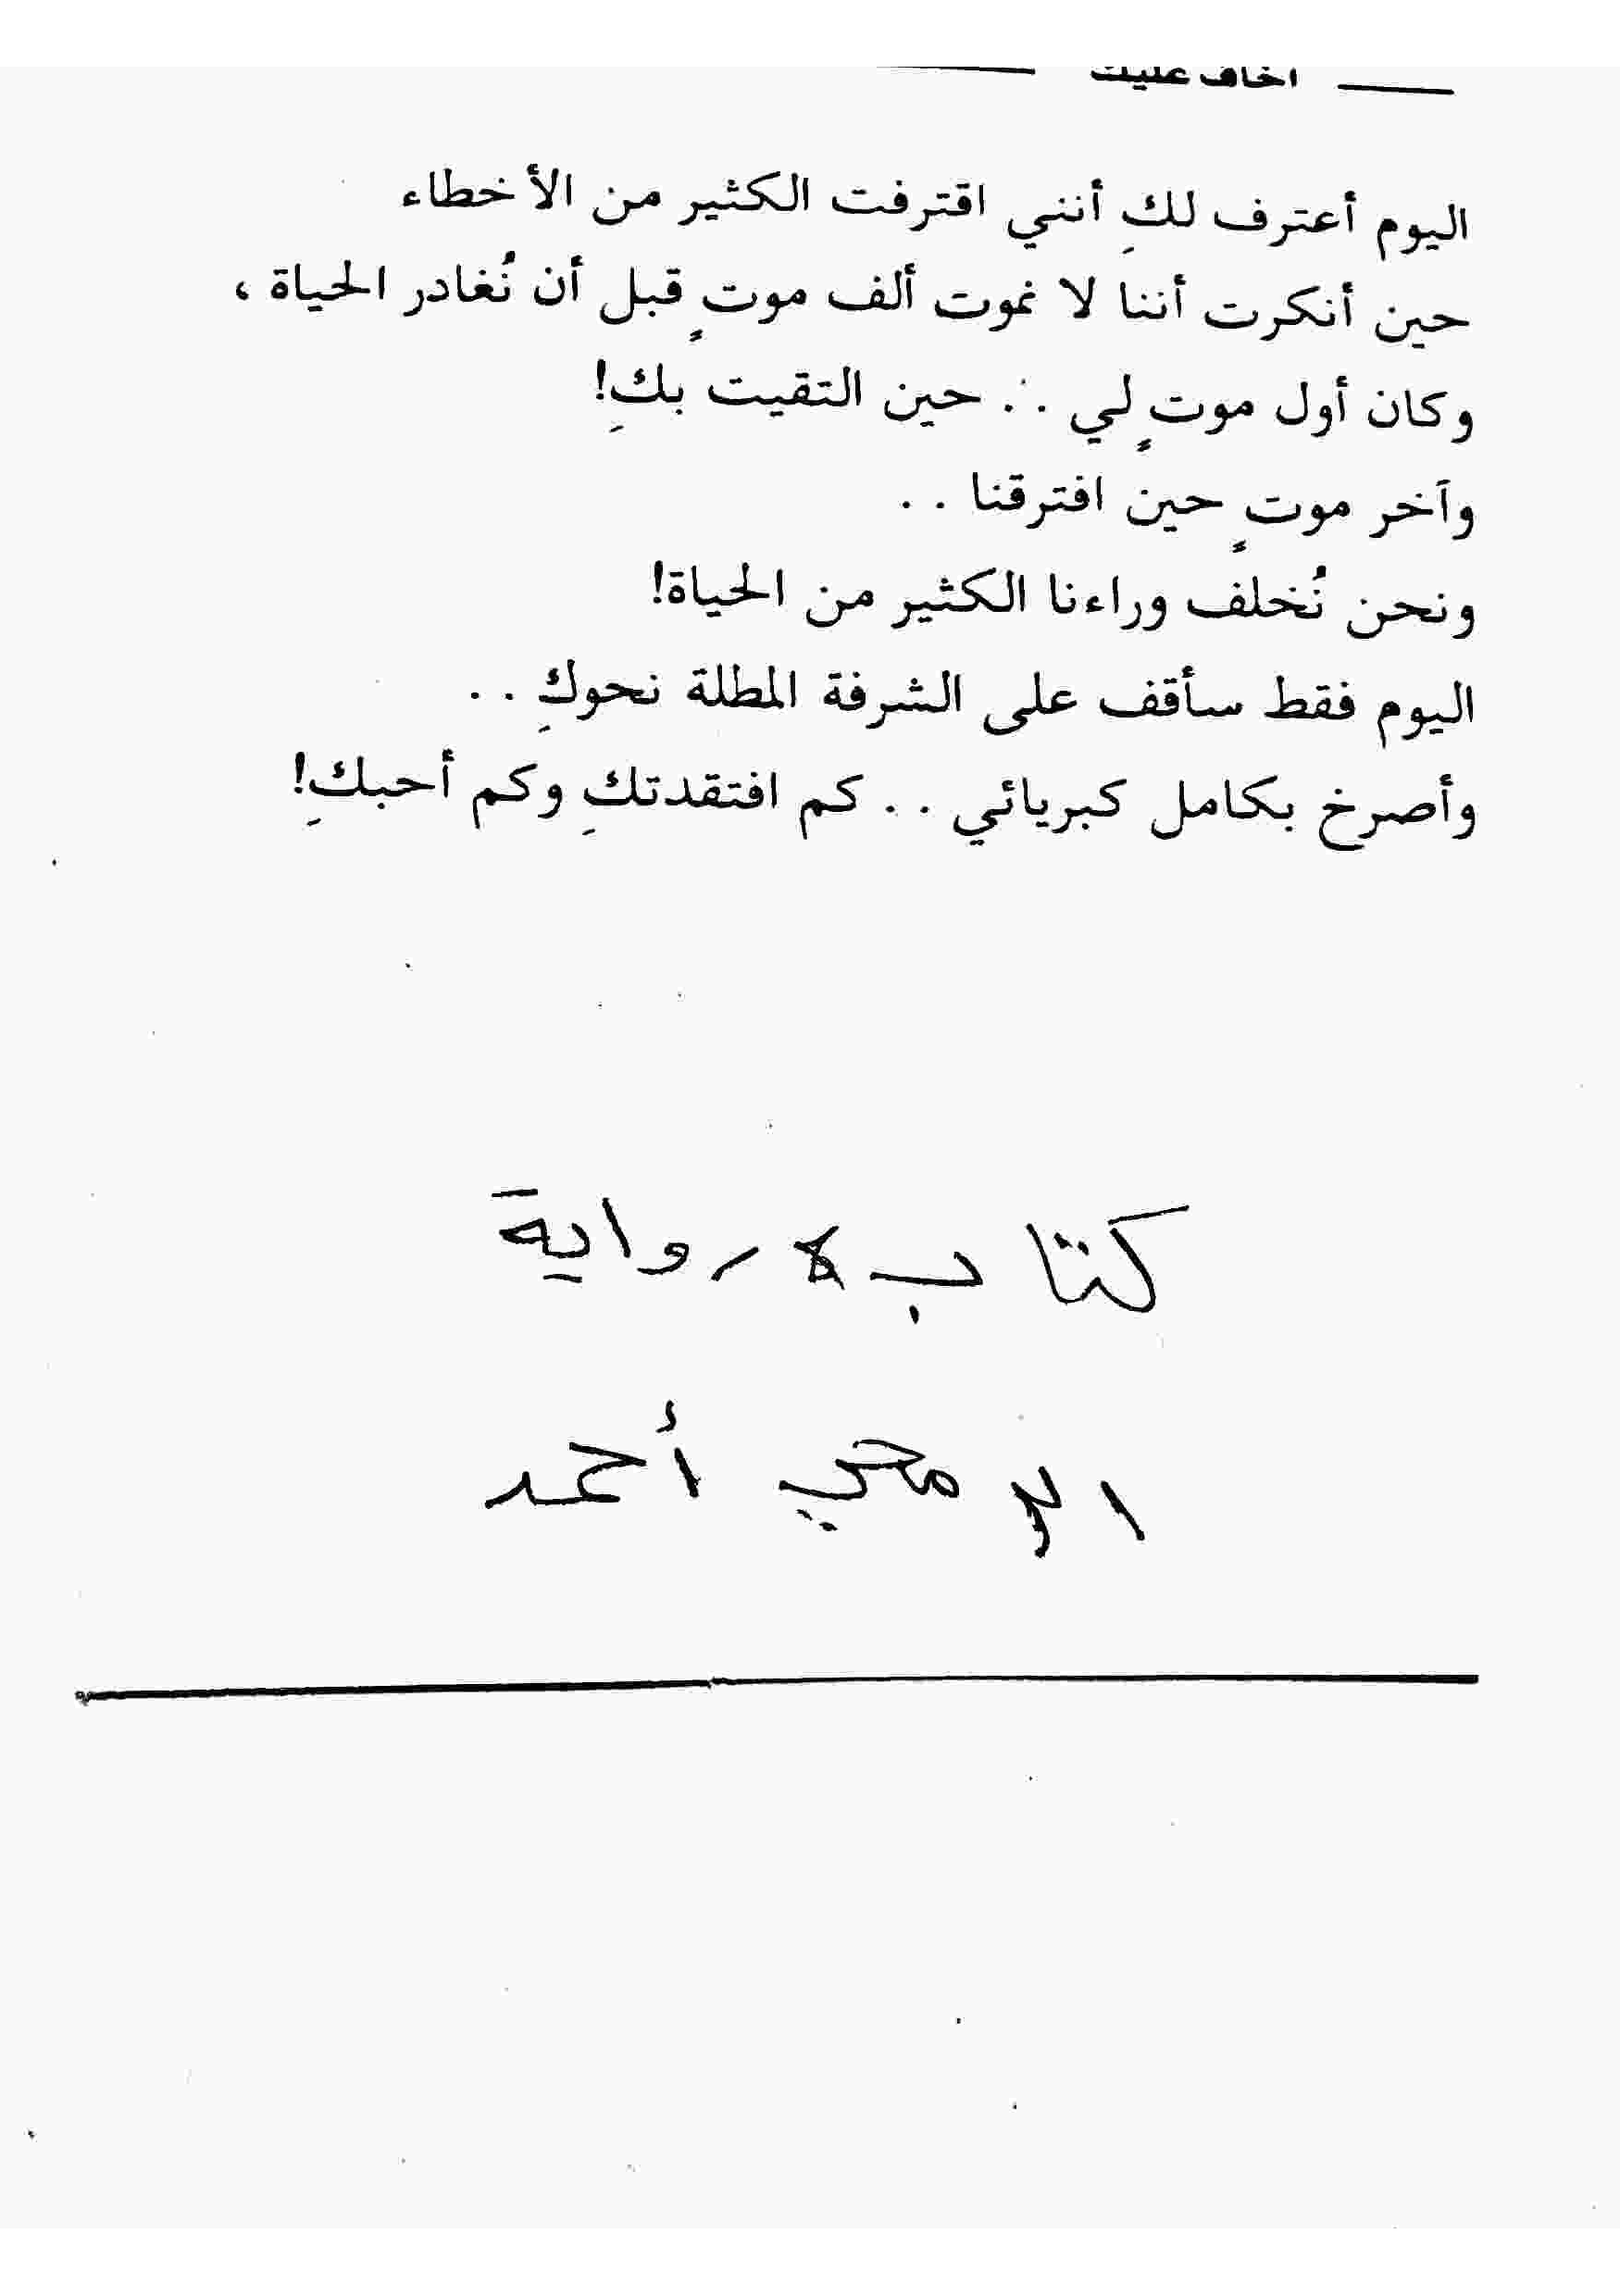 أخاف عليك
اليوم أعترف لكِ أنني اقترفت الكثير من الأخطاء
حين أنكرت أننا لا نموت ألف موتٍ قبل أن نُغادر الحياة ،
وكان أول موتٍ لي . . حين التقيت بكِ!
وآخر موتٍ حين افترقنا . .
ونحن نُخلف وراءنا الكثير من الحياة!
اليوم فقط سأقف على الشرفة المطلة نحوكِ . .
وأصرخ بكامل كبريائي . . كم افتقدتكِ وكم أحبكِ!
كتاب لا رواية
أحمد